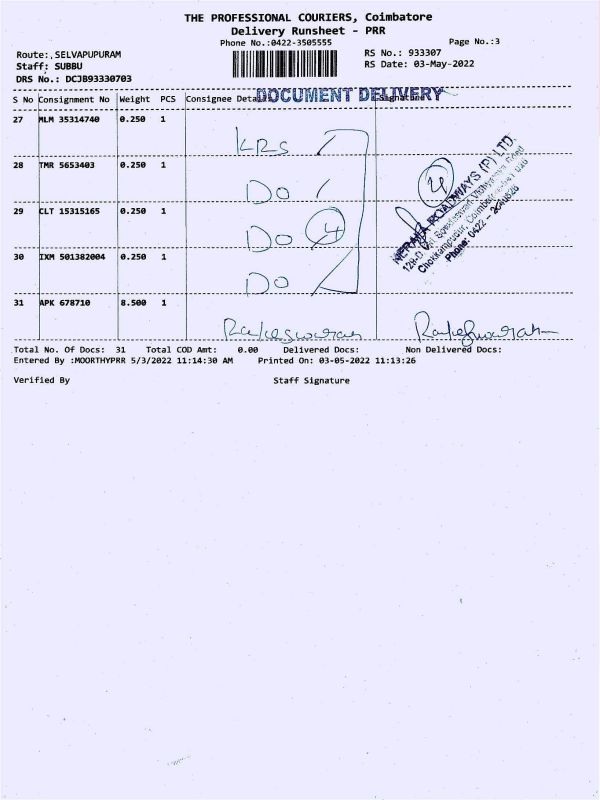 THE PROFESSIONAL COURIERS, Coimbatore
Delivery Runsheet - PRR
Phone No.:0422-3505555
Page No.:3
Route: SELVAPUPURAM
RS No.: 933307
Staff: SUBBU
RS Date: 03-May-2022
DRS No.: DCJB93330703
S No Consignment No Weight PCS Consignee Deta Signature
DOCUMENT DELIVERY
27 MLM 35314740 0.250 1
KRS
28 TMR 5653403 0.250 1
Do
29 CLT 15315165 0.250 1
Do 4
30 IXM 501382004 0.250 1
Do
4
KERALA ROADWAYS (P) LTD.
Phone: 0422 -
31 APK 678710 8.500 1
Total No. Of Docs: 31 Total COD Amt: 0.00 Delivered Docs: Non Delivered Docs:
Entered By :MOORTHYPRR 5/3/2022 11:14:30 AM Printed On: 03-05-2022 11:13:26
Verified By Staff Signature